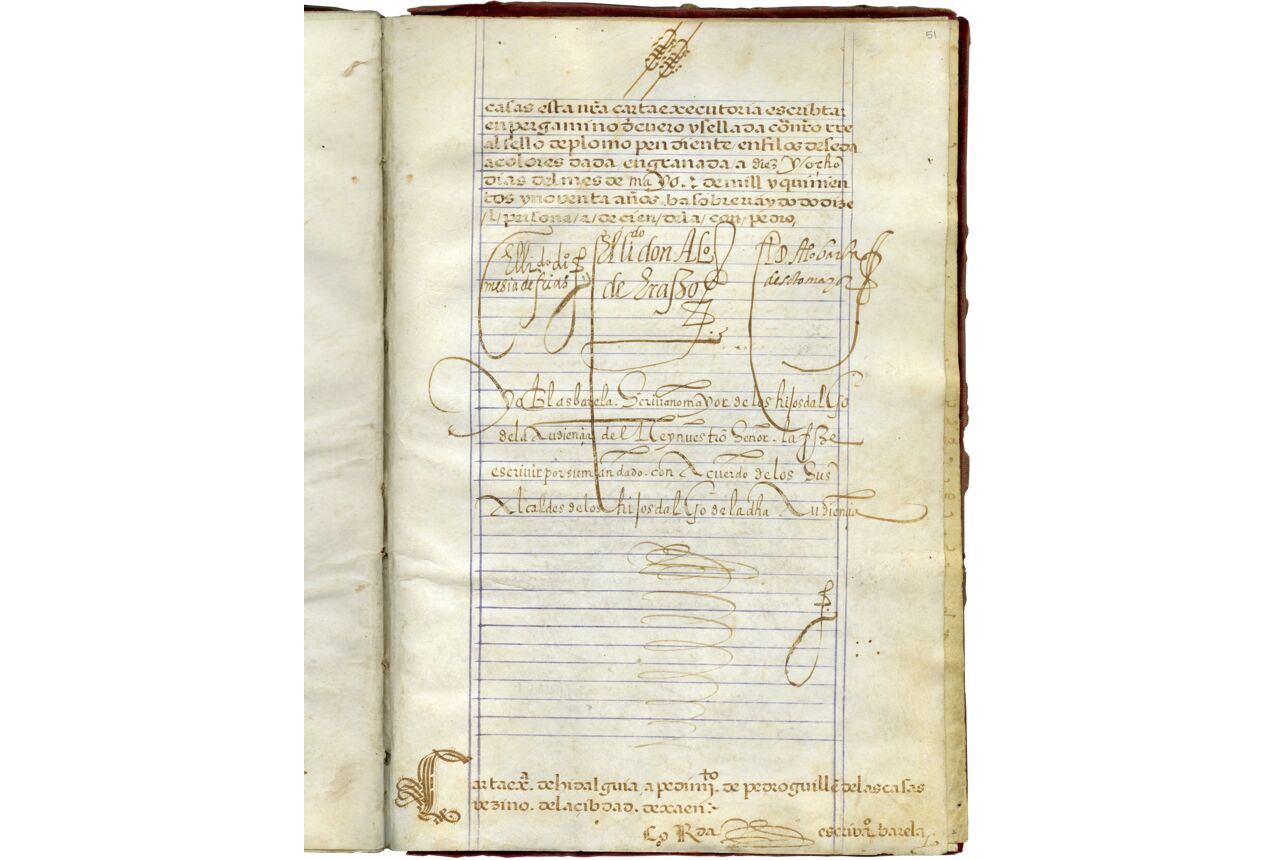 51
casas esta nr̃a carta executoria escribta
en pergamino de cuero y sellada con nr̃o
al sello de plomo pendiente en filos de seda
a colores dada en granada a diez y ocho
dias del mes de mayo. de mill y quinien
tos y noventa años. ba sobre ray do do dize
/l/ persona /a/ de cien/ de la/ con/ pedro,
El lido. do di.º
mesia de
El lido don Alº
de Erasso
de sotomayor
Yo Blas barela. Scrivano mayor de los hijosdalgo
de la Audiençia del Rey nuestro Señor. la fize
escrivir por su mandado. con Acuerdo de los sus
Alcaldes de los hijosdalgo de la dha Audiençia
Carta exª. de hidalguia a pedimiº. de pedro guillẽ de las casas
vezino. de la çibdad. de xaen
escrivª. barela